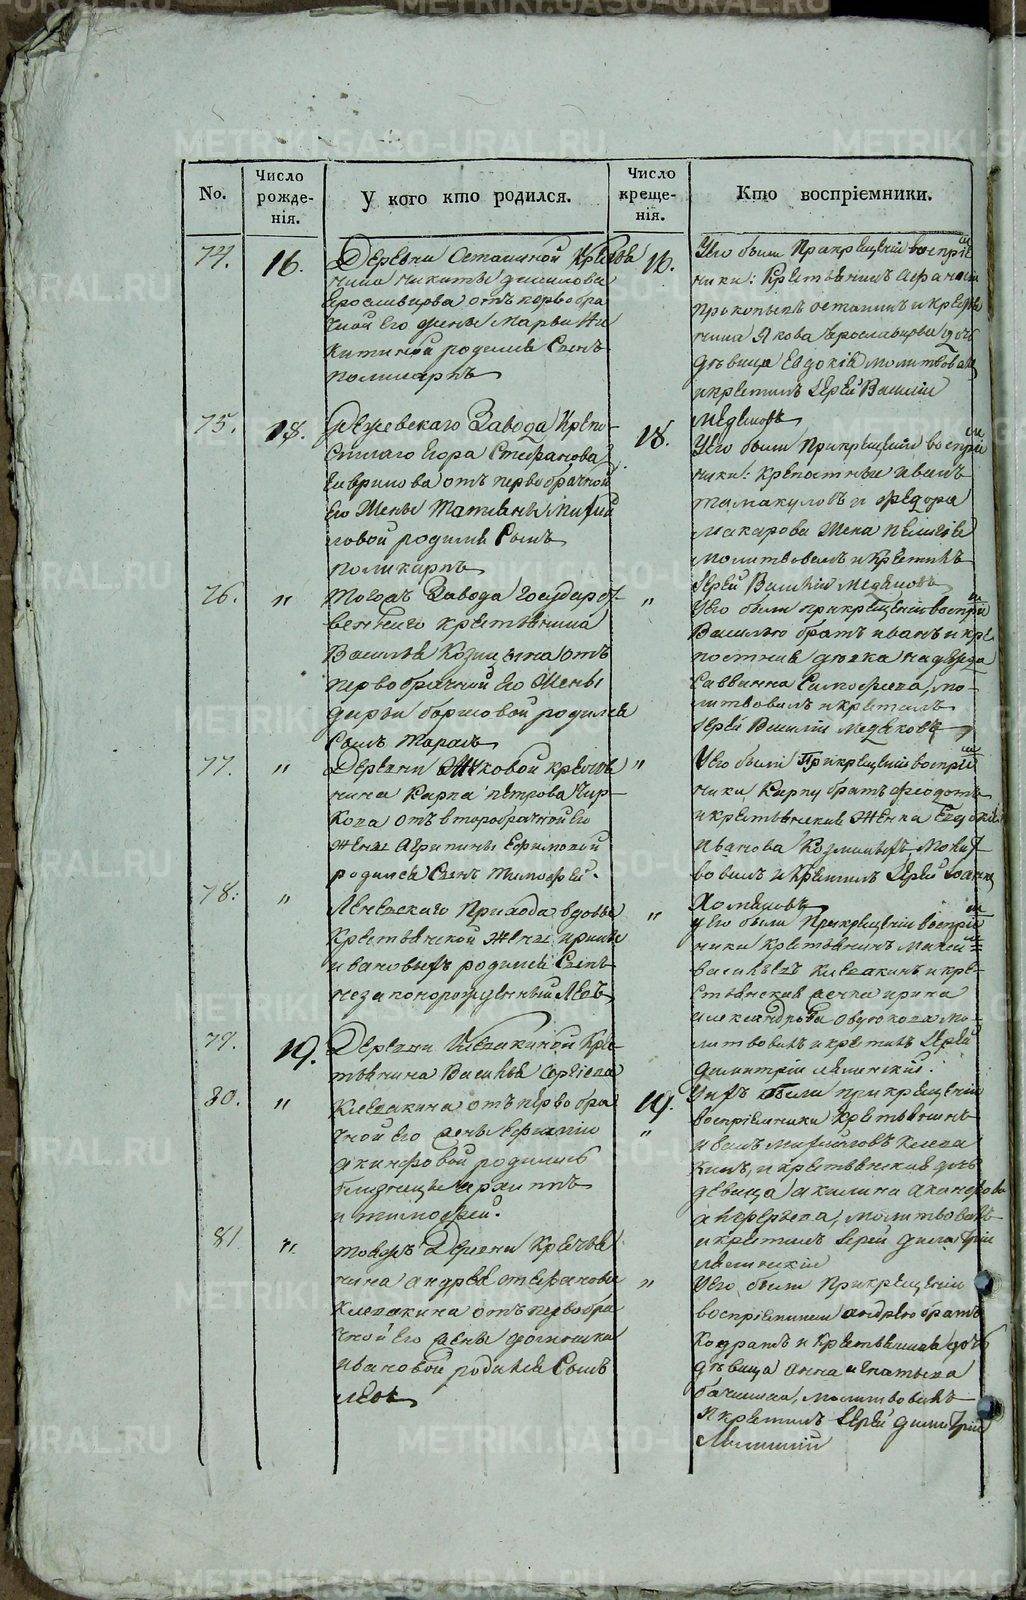 METRIKI.GASO-URAL.RU
No.
Число рожденія.
У кого кто родился.
Число крещенія.
Кто воспріемники.
74.
16.
Деревни Осташиной Крестья
нина никиты
Ярославцова отъ первобра
чной его жены Марьи Ни
китиной родился Сынъ
поликарпъ
16.
У его были При крещеніи воспріем
ники: Крестьянинъ Афанасій
прокопьевъ осташинъ и крестья
нина Якова Ярославцова дочь
дѣвица Евдокія молитвовалъ
и крестилъ Іерей Василій
Медяковъ
75.
18.
Режевскаго Завода Крѣпо-
стнаго Егора Стефанова
Гаврилова отъ первобрачной
его Жены Татьяны
родился Сынъ
поликарпъ
18.
У его были При крещеніи воспріем
ники: крѣпостные иванъ
и федора
макарова Жена
молитвовалъ и Крестилъ
Іерей Василій Медяковъ
76.
"
Тогожъ Завода государст-
веннаго крестьянина
Василья отъ
первобрачной его Жены
дарьи борисовой родился
Сынъ Тарасъ
"
У его были при крещеніи воспріем
Василью братъ иванъ и крѣ
постная дѣвка надежда
Саввина мо-
литвовалъ и крестилъ
Іерей Василій Медяковъ
77.
"
Деревни Жуковой крестья
нина Карпа Петрова Чир-
кова отъ второбрачной его
жены Агрипины Ефимовой
родился Сынъ Тимофей.
"
У его были При крещеніи воспріем
ники Карпу братъ феодотъ
и крестьянская Женка Евдокія
Иванова Молит
вовалъ и Крестилъ Іерей Іоаннъ
Хомяковъ
78.
"
Леневскаго Прихода вдовы
Крестьянской Жены ирины
ивановыхъ родился Сынъ
незаконорожденный Левъ
"
У его были При крещеніи воспріем
ники крестьянинъ
васильевъ Клевакинъ и кре-
стьянская дѣвка ирина
александрова мо-
литвовалъ и крестилъ Іерей
димитрій
79.
19.
Деревни Клевакиной Кре-
стьянина Василья Сергѣева
80.
"
Клевакина отъ первобра
чной его жены
акинфовой родились
близнецы архиппъ
и тимофей.
19.
"
У ихъ были при крещеніи
воспріемники Крестьянинъ
иванъ михайловъ Клева
кинъ, и крестьянская дочь
дѣвица акилина
молитвовалъ
и крестилъ Іерей димитрій
81.
"
тояжъ Деревни Крестья
нина андрея стефанова
Клевакина отъ первобра
чной его жены
ивановой родился Сынъ
левъ
"
У его были При крещеніи
воспріемники андрею братъ
Кодратъ и Крестьянская дочь
дѣвица анна игнатьева
молитвовалъ
и крестилъ Іерей димитрій